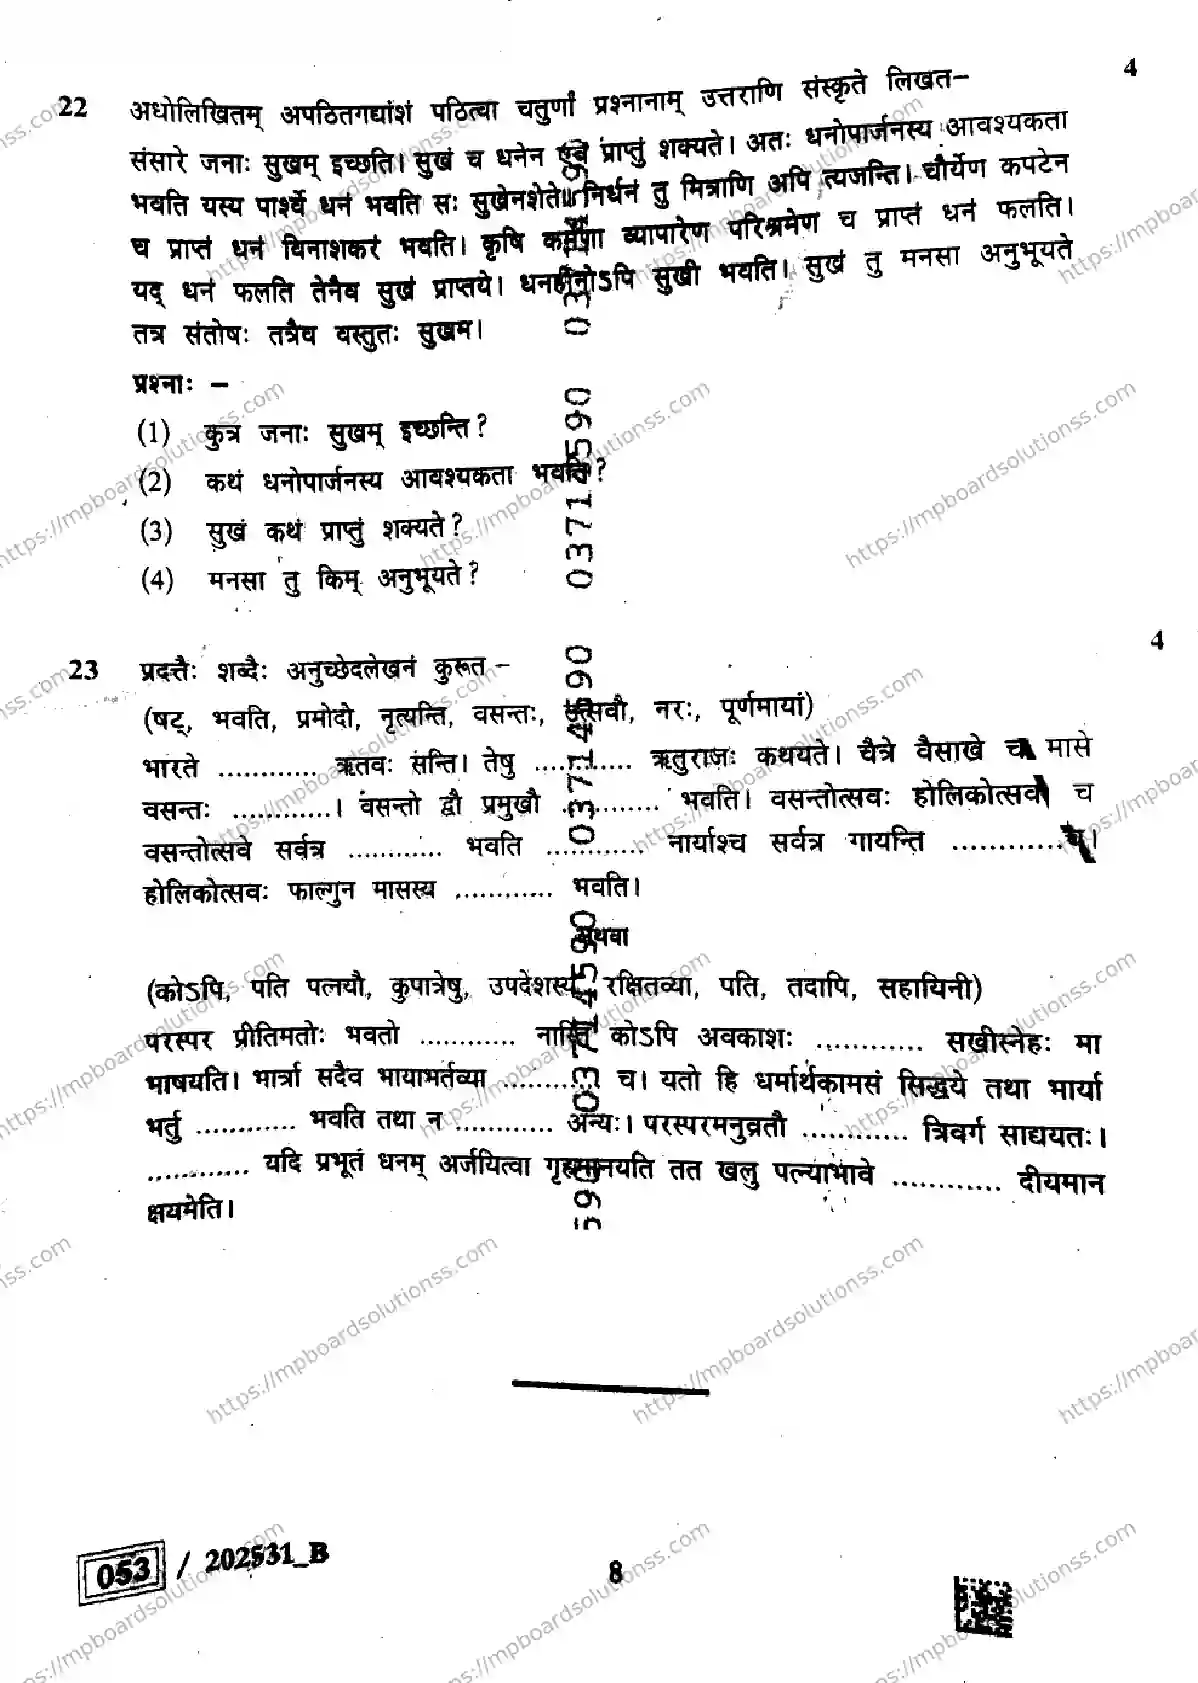 4
22 अधोलिखितम् अपठितगद्यांशं पठित्वा चतुर्णां प्रश्नानाम् उत्तराणि संस्कृते लिखत–
संसारे जनाः सुखम् इच्छति। सुखं च धनेन एवं प्राप्तुं शक्यते। अतः धनोपार्जनस्य आवश्यकता
भवति यस्य पार्श्वे धनं भवति सः सुखेनशेते। निर्धनं तु मित्राणि अपि त्यजन्ति। चौर्येण कपटेन
च प्राप्तं धनं विनाशकरं भवति। कृषि कर्मणा व्यापारेण परिश्रमेण च प्राप्तं धनं फलति।
यद् धनं फलति तेनैव सुखं प्राप्तये। धनहीनोऽपि सुखी भवति। सुखं तु मनसा अनुभूयते
तत्र संतोषः तत्रैव वस्तुतः सुखम।
प्रश्नाः –
(1) कुत्र जनाः सुखम् इच्छन्ति?
(2) कथं धनोपार्जनस्य आवश्यकता भवति?
(3) सुखं कथं प्राप्तुं शक्यते?
(4) मनसा तु किम् अनुभूयते?
4
23 प्रदत्तैः शब्दैः अनुच्छेदलेखनं कुरूत –
(षट्, भवति, प्रमोदो, नृत्यन्ति, वसन्तः, उत्सवौ, नरः, पूर्णमायां)
भारते ............ ऋतवः सन्ति। तेषु ............ ऋतुराजः कथयते। चैत्रे वैसाखे च मासे
वसन्तः ............। वसन्तो द्वौ प्रमुखौ ............ भवति। वसन्तोत्सवः होलिकोत्सव च
वसन्तोत्सवे सर्वत्र ............ भवति ............ नार्याश्च सर्वत्र गायन्ति ............ च।
होलिकोत्सवः फाल्गुन मासस्य ............ भवति।
अथवा
(कोऽपि, पति पलयौ, कुपात्रेषु, उपदेशस्य, रक्षितव्या, पति, तदापि, सहायिनी)
परस्पर प्रीतिमतोः भवतो ............ नास्ति कोऽपि अवकाशः ............ सखीस्नेहः मा
भाषयति। भार्त्रा सदैव भायाभर्तव्या ............ च। यतो हि धर्मार्थकामसं सिद्धये तथा भार्या
भर्तु ............ भवति तथा न ............ अन्यः। परस्परमनुव्रतौ ............ त्रिवर्ग साद्ययतः।
............ यदि प्रभूतं धनम् अर्जयित्वा गृहमानयति तत खलु पत्न्याभावे ............ दीयमान
क्षयमेति।
053 / 202531_B
8
03714590
03714590
https://mpboardsolutionss.com